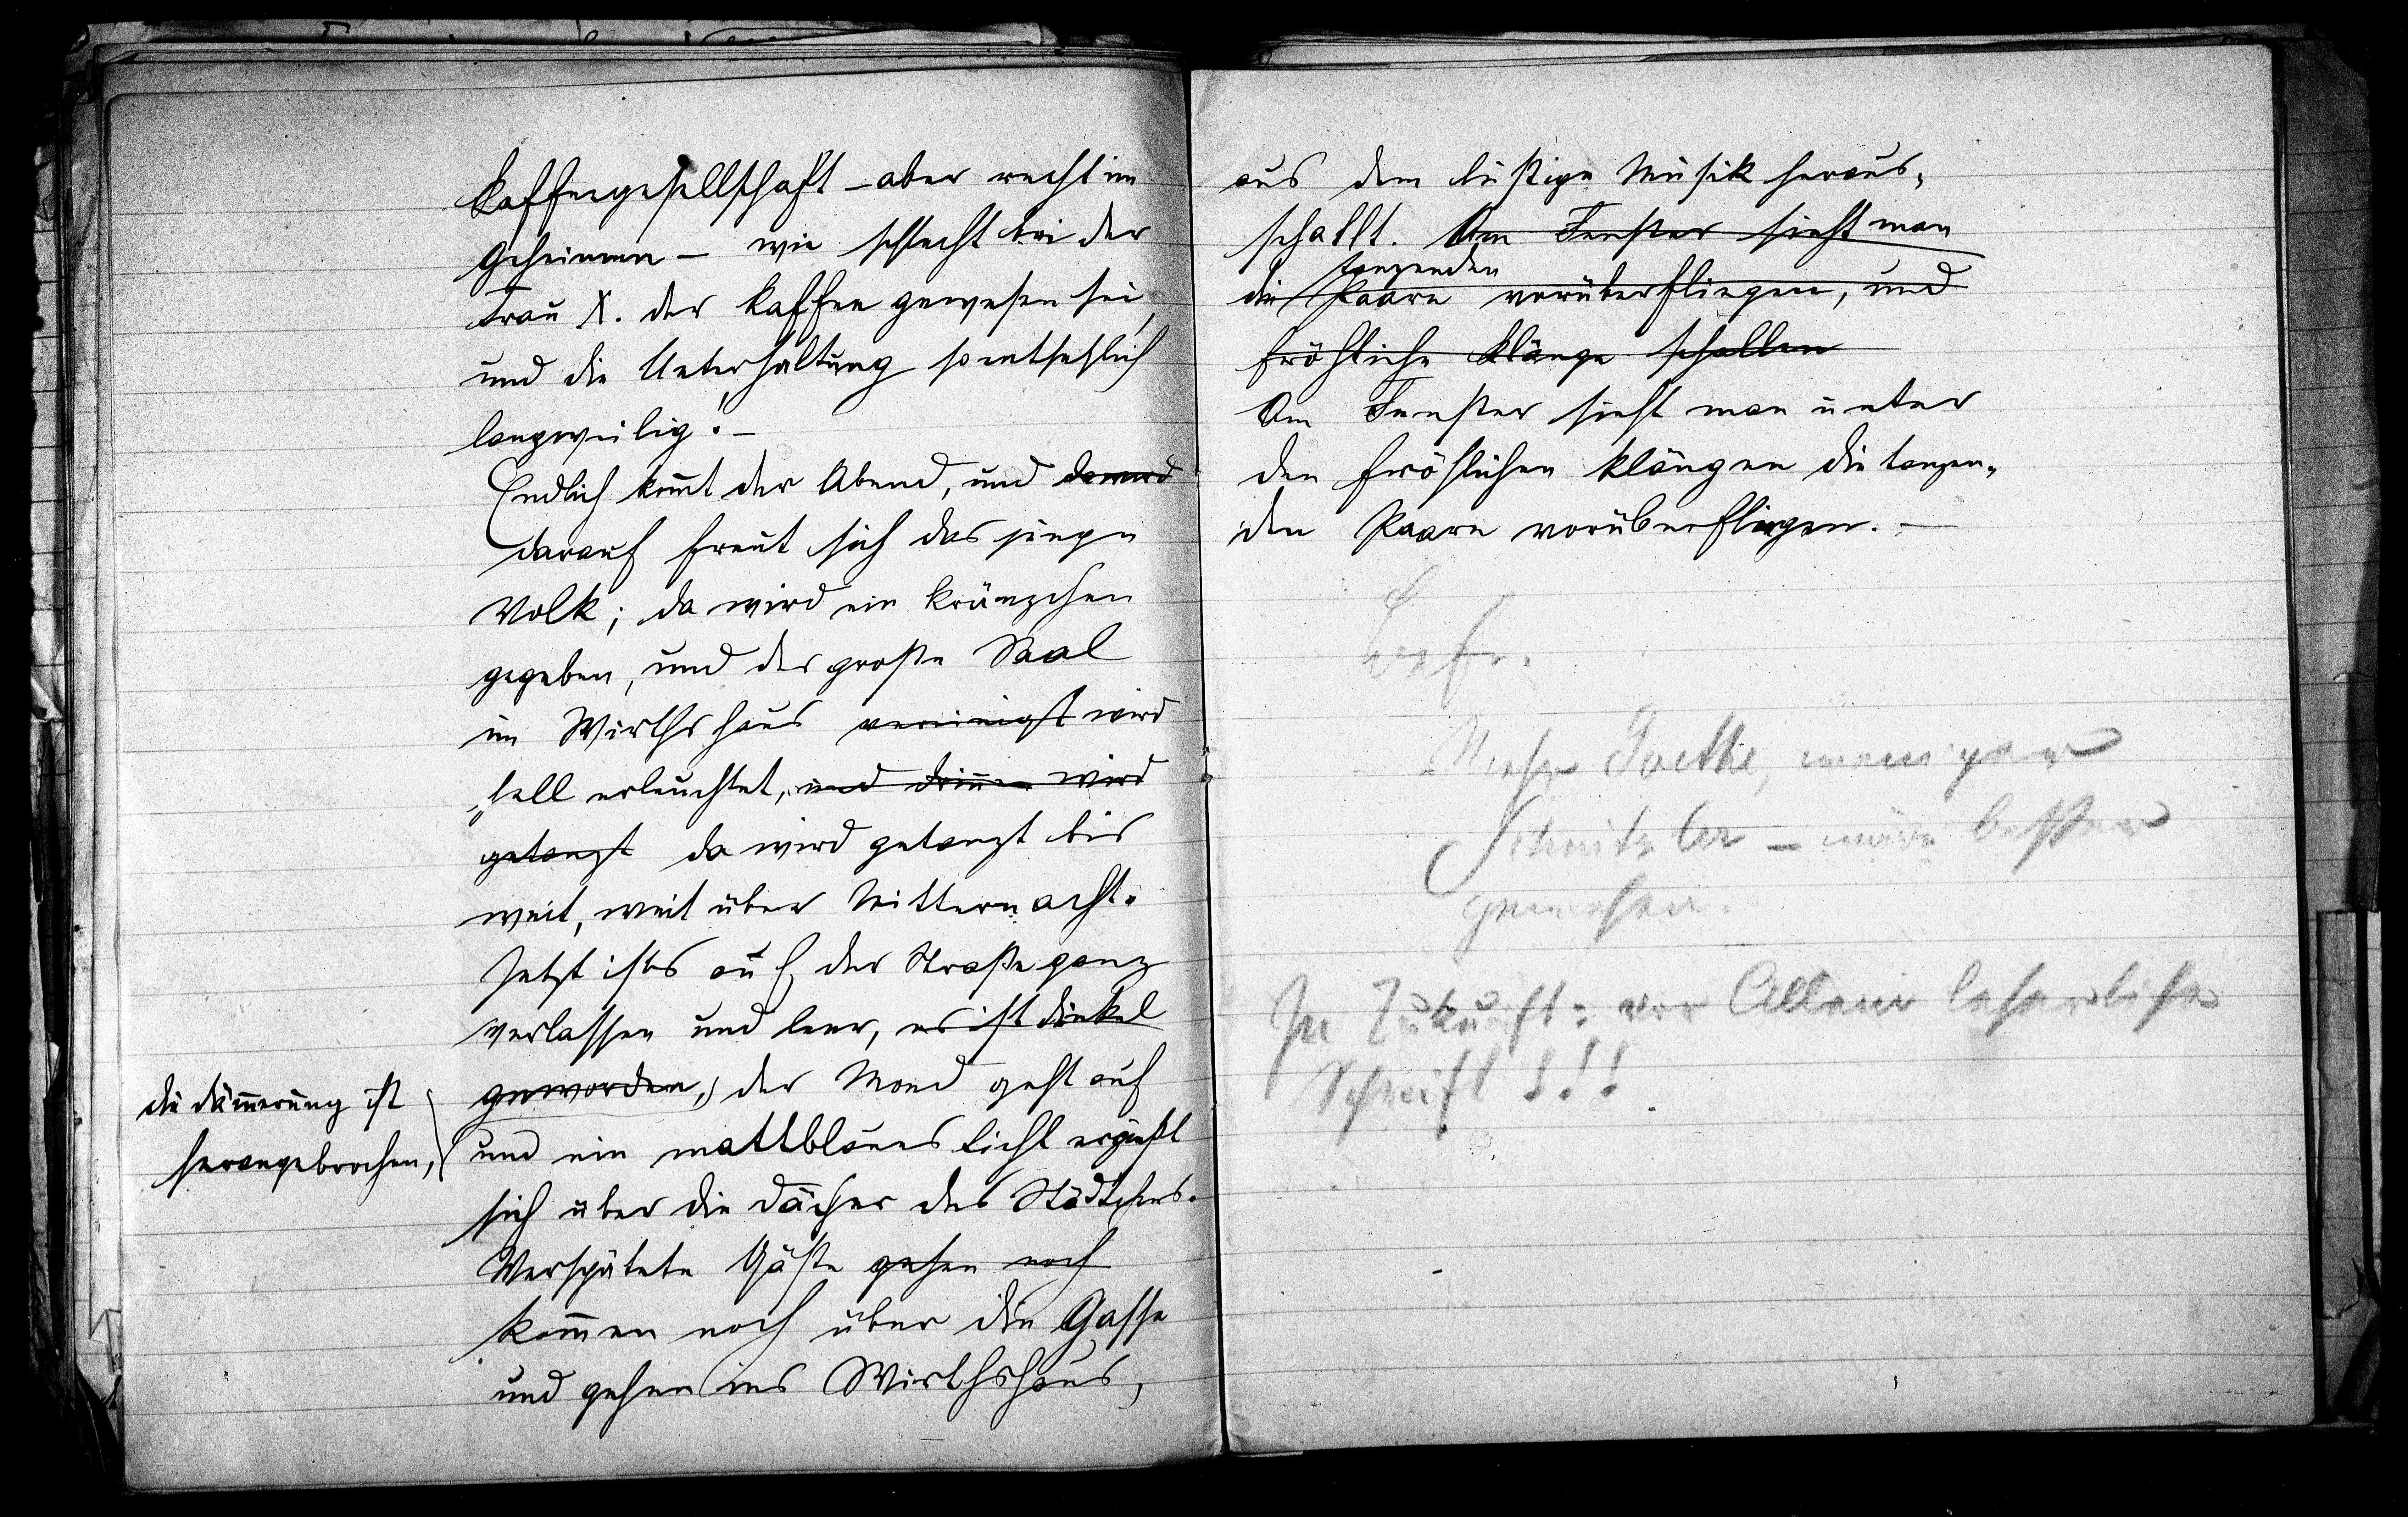 Kaffeegesellschaft – aber recht im
Geheimen – wie schlecht bei der
Frau X. der Kaffee gewesen sei,
und die Unterhaltung so entsetzlich
langweilig! –
Endlich kom̄t der Abend, und da wird
darauf freut sich das junge
Volk; da wird ein Kränzchen
gegeben, und der große Saal
im Wirthshaus vereinigt wird
hell erleuchtet, und drinnen wird
getanzt da wird getanzt bis
weit, weit über Mitternacht.
Jetzt ists auf der Straße ganz
verlassen und leer, es ist dunkel
geworden, der Mond geht auf
die Däm̄erung ist
herangebrochen,
und ein mattblaues Licht ergießt
sich über die Dächer des Städtchens.
Verspätete Gäste gehen noch
kom̄en noch über die Gasse
und gehen ins Wirthshaus,
aus dem lustige Musik heraus-
schallt. Am Fenster sieht man
tanzenden
die Paare vorüberfliegen, und
fröhliche Klänge schallen
Am Fenster sieht man unter
den fröhlichen Klängen die tanzen-
den Paare vorüberfliegen. –
Mehr Goethe, weniger
Schnitzler – wäre besser
gewesen.
In Zukunft: vor Allem leserliche
Schrift!!!